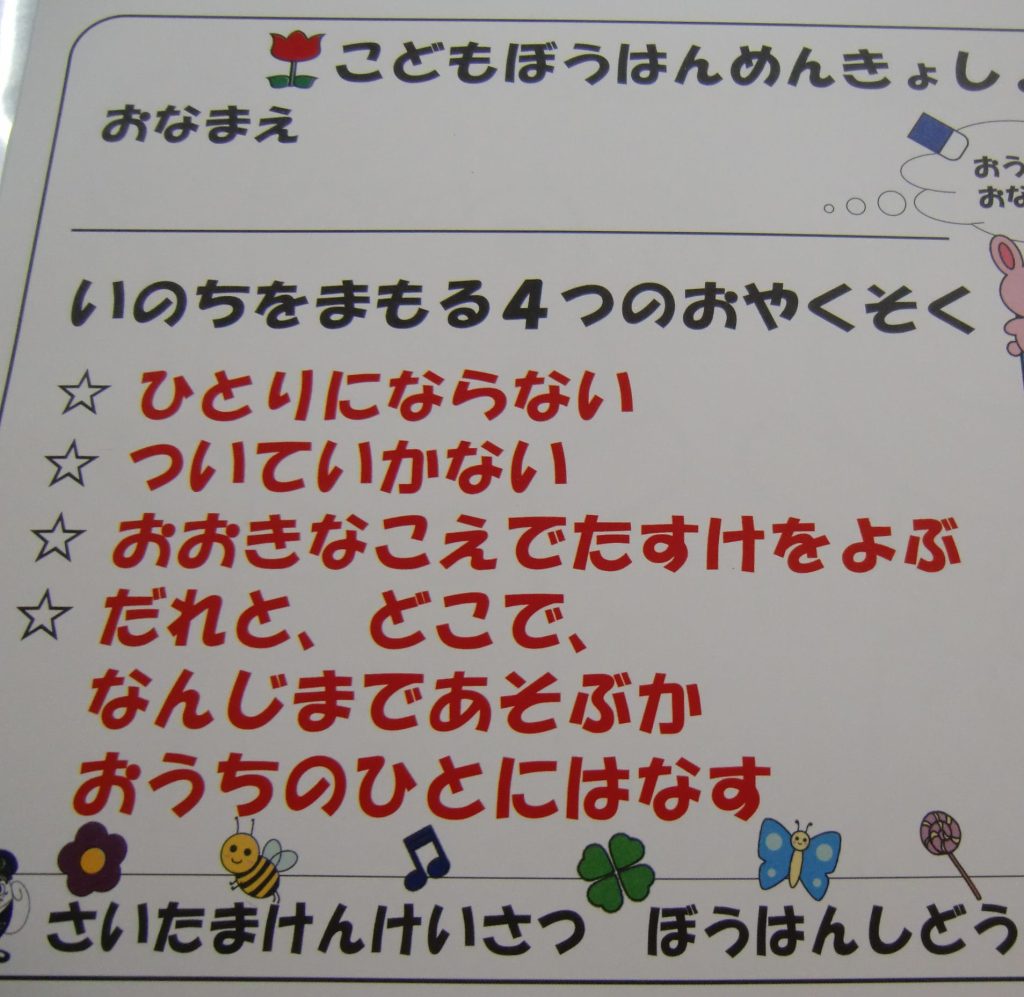 こどもぼうはんめんきょし
おなまえ
おう
おな
いのちをまもる４つのおやくそく
☆ ひとりにならない
☆ ついていかない
☆ おおきなこえでたすけをよぶ
☆ だれと、どこで、
なんじまであそぶか
おうちのひとにはなす
さいたまけんけいさつ　ぼうはんしどう